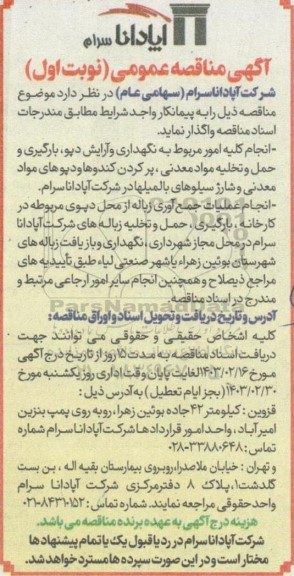 آپادانا سرام
آگهی مناقصه عمومی (نوبت اول)
شرکت آپاداناسرام (سهامی عام) در نظر دارد موضوع
مناقصه ذیل را به پیمانکار واجد شرایط مطابق مندرجات
اسناد مناقصه واگذار نماید.
-انجام کلیه امور مربوط به نگهداری و آرایش دپو، بارگیری و
حمل و تخلیه مواد معدنی ، پر کردن کندوها و دپوهای مواد
معدنی و شارژ سیلوهای بالمیلها در شرکت آپاداناسرام.
-انجام عملیات جمع آوری زباله از محل دپوی مربوطه در
کارخانه ، بارگیری ، حمل و تخلیه زباله های شرکت آپادانا
سرام در محل مجاز شهرداری ، نگهداری و بازیافت زباله های
شهرستان بوئین زهرا، یا شهر صنعتی لیاء طبق تأییدیه های
مراجع ذیصلاح و همچنین انجام سایر امور ارجاعی مرتبط و
مندرج در اسناد مناقصه.
آدرس و تاریخ دریافت و تحویل اسناد و اوراق مناقصه:
کلیه اشخاص حقیقی و حقوقی می توانند جهت
دریافت اسناد مناقصه به مدت ۱۵ روز از تاریخ درج آگهی
مورخ ۱۴۰۳/۰۲/۱۶ لغایت پایان وقت اداری روز یکشنبه مورخ
۱۴۰۳/۰۲/۳۰ (بجز ایام تعطیل) به آدرس ذیل :
قزوین : کیلومتر ۴۲ جاده بوئین زهرا، روبه روی پمپ بنزین
امیرآباد ، واحد امور قراردادها شرکت آپادانا سرام شماره
تماس : ۳۳۸۸۰۶۴۸-۰۲۸
و تهران : خیابان ملاصدرا، روبروی بیمارستان بقیه اله ، بن بست
گلدشت۱، پلاک ۸ دفتر مرکزی شرکت آپادانا سرام
واحد حقوقی مراجعه نمایند. شماره تماس : ۸۴۳۱۰۱۵۲-۰۲۱
هزینه درج آگهی به عهده برنده مناقصه می باشد.
شرکت آپادانا سرام در رد یا قبول یک یا تمام پیشنهادها
مختار است و در این صورت سپرده ها مسترد خواهد شد.